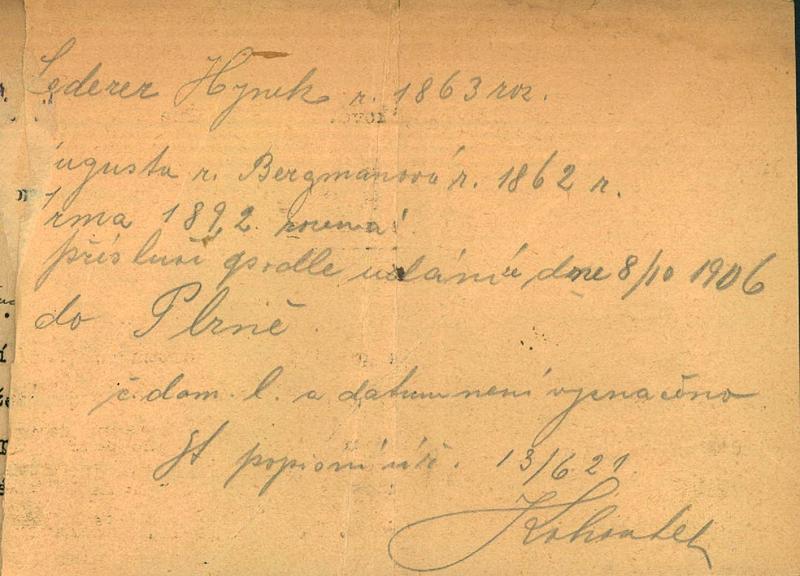 Lederer Hynek r. 1863 roz.
ugusta r. Bergmanová r. 1862 r.
Irma 1892
přísluší podle udání dne 8/10 1906
do Plzně
č. dom. l. a datum není vyznačeno
popisní úř. 13/6 21
Kohoutek